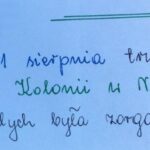 1 sierpnia tr
Kolonii w N
dych była zorga